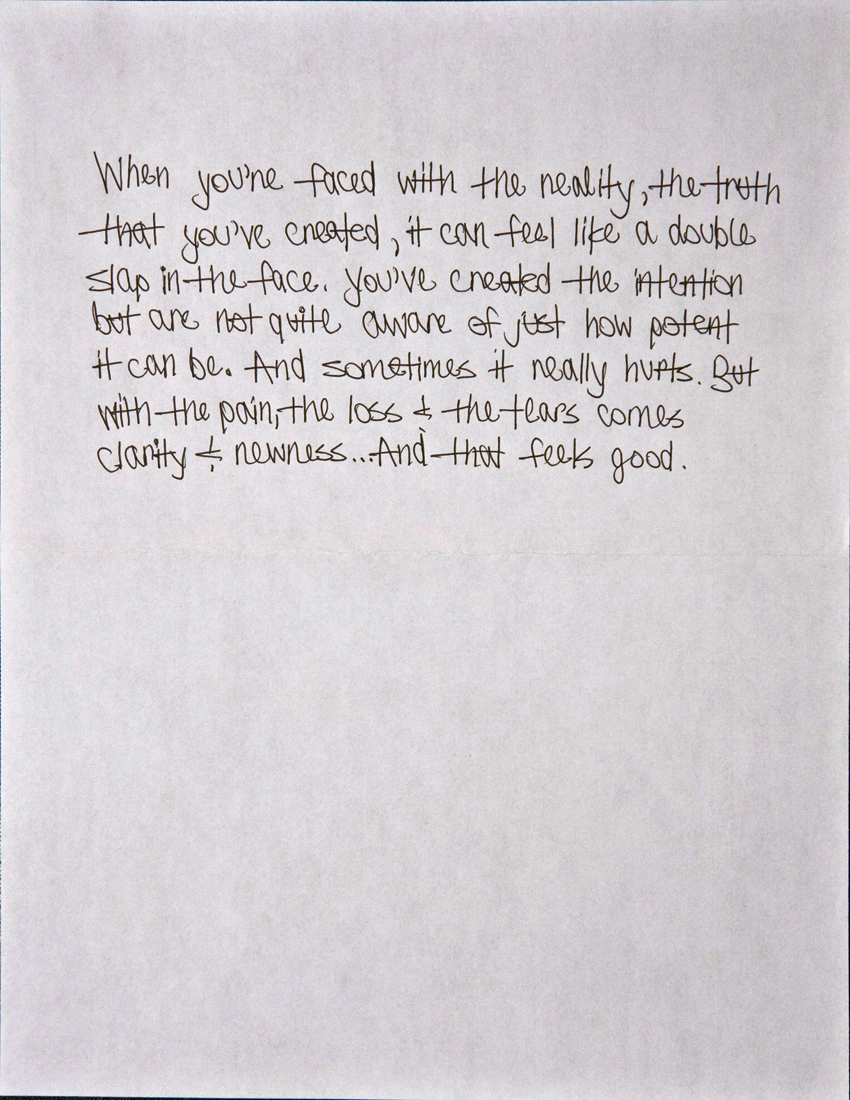 When you're faced with the reality, the truth
that you've created, it can feel like a double
slap in the face. You've created the intention
but are not quite aware of just how potent
it can be. And sometimes it really hurts. But
with the pain, the loss & the tears comes
clarity & newness...And that feels good.